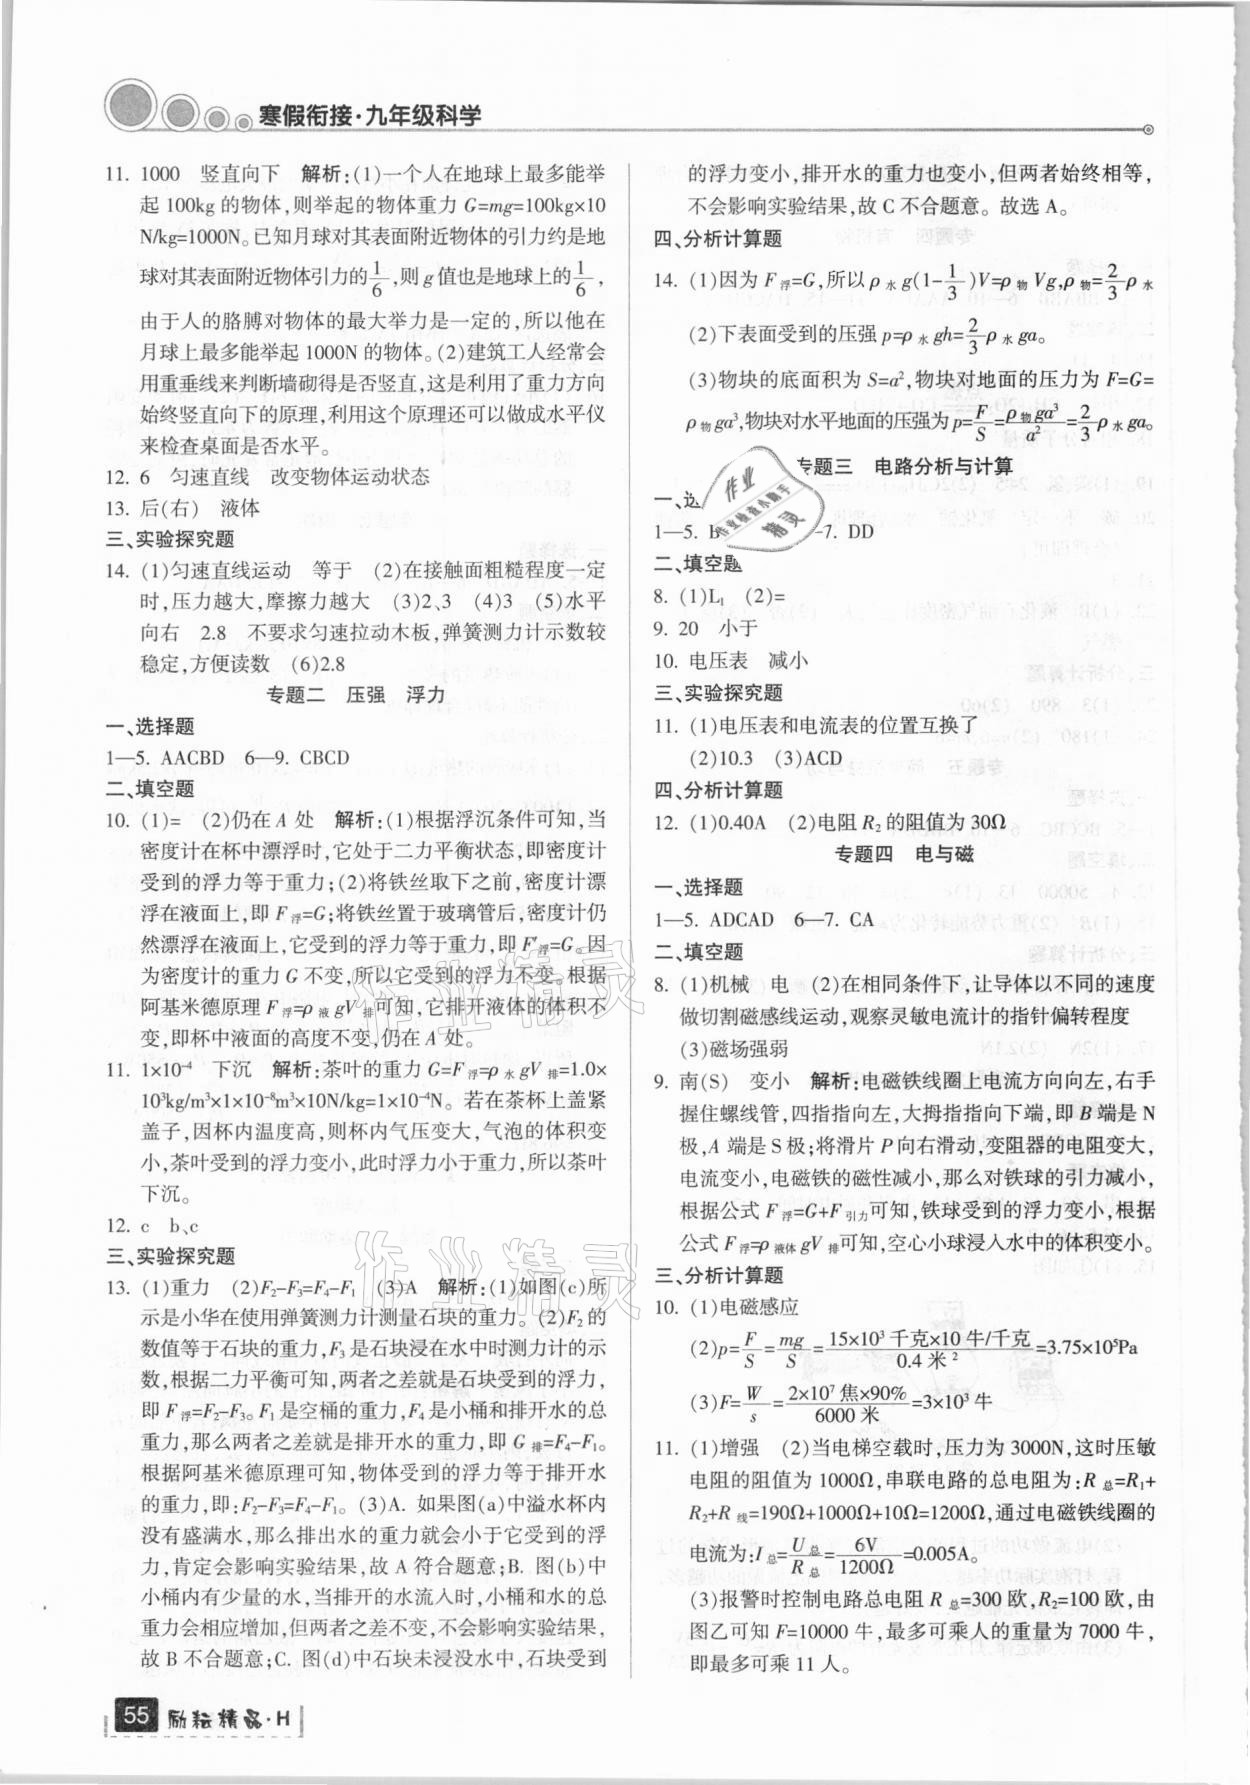 寒假衔接·九年级科学
11. 1000　竖直向下　解析:(1)一个人在地球上最多能举
起100kg的物体,则举起的物体重力G=mg=100kg×10
N/kg=1000N。已知月球对其表面附近物体的引力约是地
球对其表面附近物体引力的1/6,则g值也是地球上的1/6,
由于人的胳膊对物体的最大举力是一定的,所以他在
月球上最多能举起1000N的物体。(2)建筑工人经常会
用重垂线来判断墙砌得是否竖直,这是利用了重力方向
始终竖直向下的原理,利用这个原理还可以做成水平仪
来检查桌面是否水平。
12. 6　匀速直线　改变物体运动状态
13. 后(右)　液体
三、实验探究题
14. (1)匀速直线运动　等于　(2)在接触面粗糙程度一定
时,压力越大,摩擦力越大　(3)2、3　(4)3　(5)水平
向右　2.8　不要求匀速拉动木板,弹簧测力计示数较
稳定,方便读数　(6)2.8
专题二　压强　浮力
一、选择题
1—5. AACBD　6—9. CBCD
二、填空题
10. (1)=　(2)仍在A处　解析:(1)根据浮沉条件可知,当
密度计在杯中漂浮时,它处于二力平衡状态,即密度计
受到的浮力等于重力;(2)将铁丝取下之前,密度计漂
浮在液面上,即F浮=G;将铁丝置于玻璃管后,密度计仍
然漂浮在液面上,它受到的浮力等于重力,即F′浮=G。因
为密度计的重力G不变,所以它受到的浮力不变。根据
阿基米德原理F浮=ρ液gV排可知,它排开液体的体积不
变,即杯中液面的高度不变,仍在A处。
11. 1×10⁻⁴　下沉　解析:茶叶的重力G=F浮=ρ水gV排=1.0×
10³kg/m³×1×10⁻⁸m³×10N/kg=1×10⁻⁴N。若在茶杯上盖紧
盖子,因杯内温度高,则杯内气压变大,气泡的体积变
小,茶叶受到的浮力变小,此时浮力小于重力,所以茶叶
下沉。
12. c　b、c
三、实验探究题
13. (1)重力　(2)F₂−F₃=F₄−F₁　(3)A　解析:(1)如图(c)所
示是小华在使用弹簧测力计测量石块的重力。(2)F₂的
数值等于石块的重力,F₃是石块浸在水中时测力计的示
数,根据二力平衡可知,两者之差就是石块受到的浮力,
即F浮=F₂−F₃。F₁是空桶的重力,F₄是小桶和排开水的总
重力,那么两者之差就是排开水的重力,即G排=F₄−F₁。
根据阿基米德原理可知,物体受到的浮力等于排开水
的重力,即:F₂−F₃=F₄−F₁。(3)A. 如果图(a)中溢水杯内
没有盛满水,那么排出水的重力就会小于它受到的浮
力,肯定会影响实验结果,故A符合题意;B. 图(b)中
小桶内有少量的水,当排开的水流入时,小桶和水的总
重力会相应增加,但两者之差不变,不会影响实验结果,
故B不合题意;C. 图(d)中石块未浸没水中,石块受到
的浮力变小,排开水的重力也变小,但两者始终相等,
不会影响实验结果,故C不合题意。故选A。
四、分析计算题
14. (1)因为F浮=G,所以ρ水g(1-1/3)V=ρ物Vg,ρ物=2/3ρ水
(2)下表面受到的压强p=ρ水gh=2/3ρ水ga。
(3)物块的底面积为S=a²,物块对地面的压力为F=G=
ρ物ga³,物块对水平地面的压强为p=F/S=ρ物ga³/a²=2/3ρ水ga。
专题三　电路分析与计算
一、选
1—5. B　—7. DD
二、填空题
8. (1)L₁　(2)=
9. 20　小于
10. 电压表　减小
三、实验探究题
11. (1)电压表和电流表的位置互换了
(2)10.3　(3)ACD
四、分析计算题
12. (1)0.40A　(2)电阻R₂的阻值为30Ω
专题四　电与磁
一、选择题
1—5. ADCAD　6—7. CA
二、填空题
8. (1)机械　电　(2)在相同条件下,让导体以不同的速度
做切割磁感线运动,观察灵敏电流计的指针偏转程度
(3)磁场强弱
9. 南(S)　变小　解析:电磁铁线圈上电流方向向左,右手
握住螺线管,四指指向左,大拇指指向下端,即B端是N
极,A端是S极;将滑片P向右滑动,变阻器的电阻变大,
电流变小,电磁铁的磁性减小,那么对铁球的引力减小,
根据公式F浮=G+F引力可知,铁球受到的浮力变小,根据
公式F浮=ρ液体gV排可知,空心小球浸入水中的体积变小。
三、分析计算题
10. (1)电磁感应
(2)p=F/S=mg/S=15×10³千克×10牛/千克/0.4米²=3.75×10⁵Pa
(3)F=W/s=2×10⁷焦×90%/6000米=3×10³牛
11. (1)增强　(2)当电梯空载时,压力为3000N,这时压敏
电阻的阻值为1000Ω,串联电路的总电阻为:R总=R₁+
R₂+R线=190Ω+1000Ω+10Ω=1200Ω,通过电磁铁线圈的
电流为:I总=U总/R总=6V/1200Ω=0.005A。
(3)报警时控制电路总电阻R总=300欧,R₂=100欧,由
图乙可知F=10000牛,最多可乘人的重量为7000牛,
即最多可乘11人。
55 励耘精品·H
作业
作业检查小助手
精灵
作业精灵
作业精灵